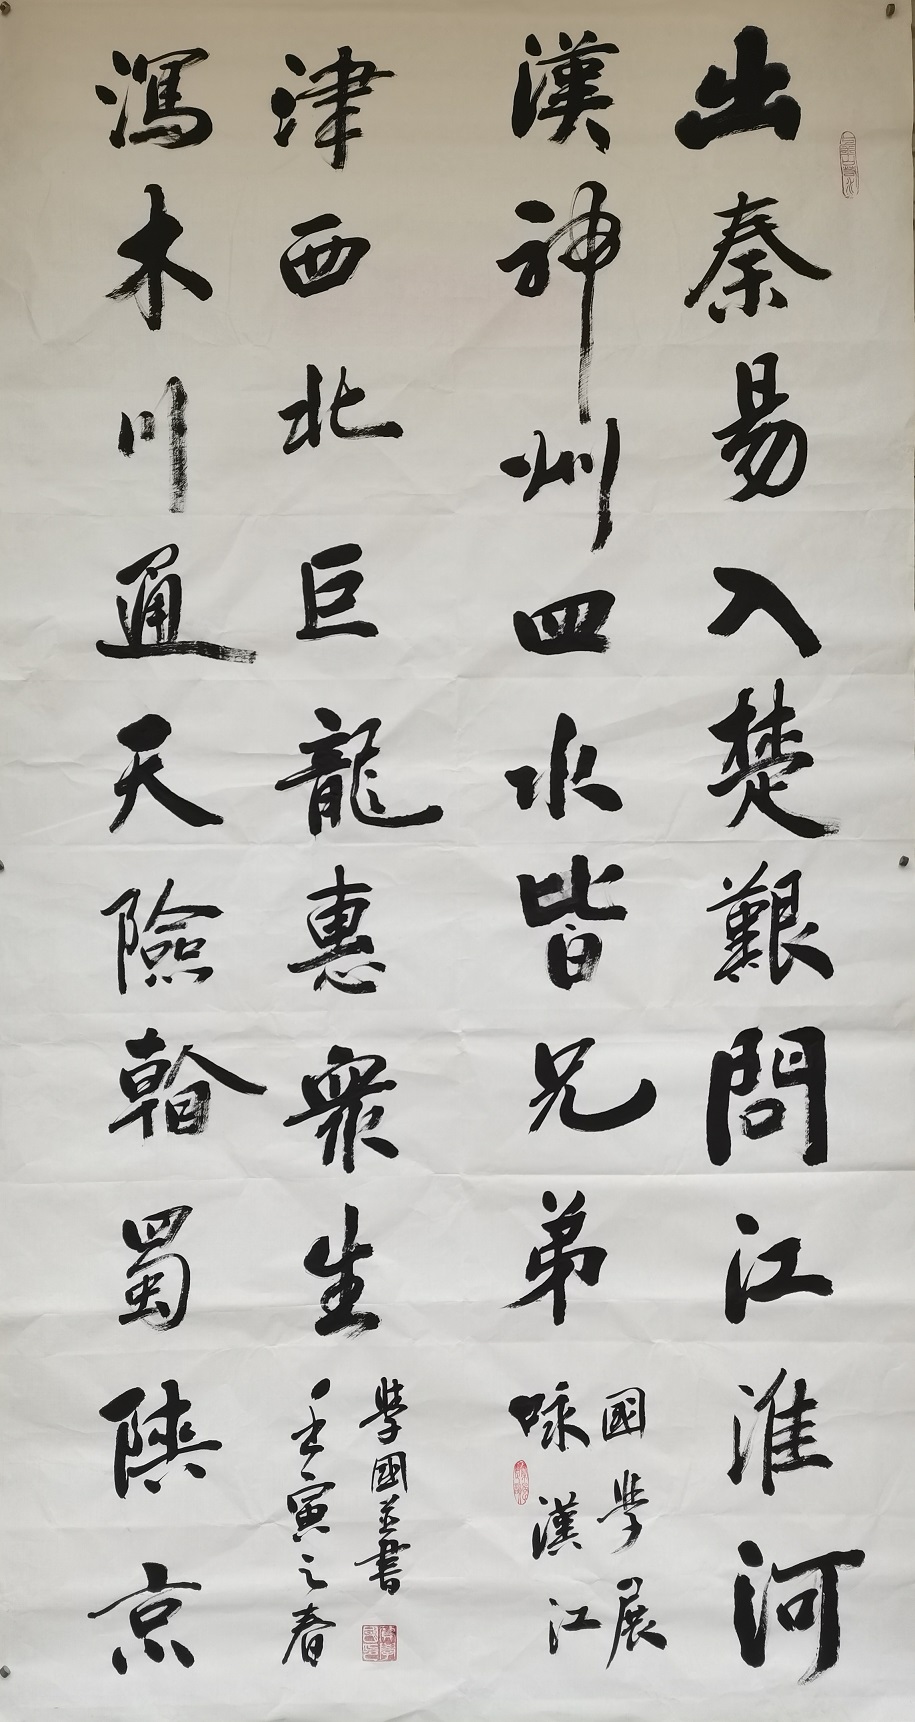 出秦易入楚艱問江淮河
漢神州四水皆兄弟
國學展
咏漢江
瀉木川通天險翰蜀陝京
津西北巨龍惠衆生
壬寅之春
學國並書